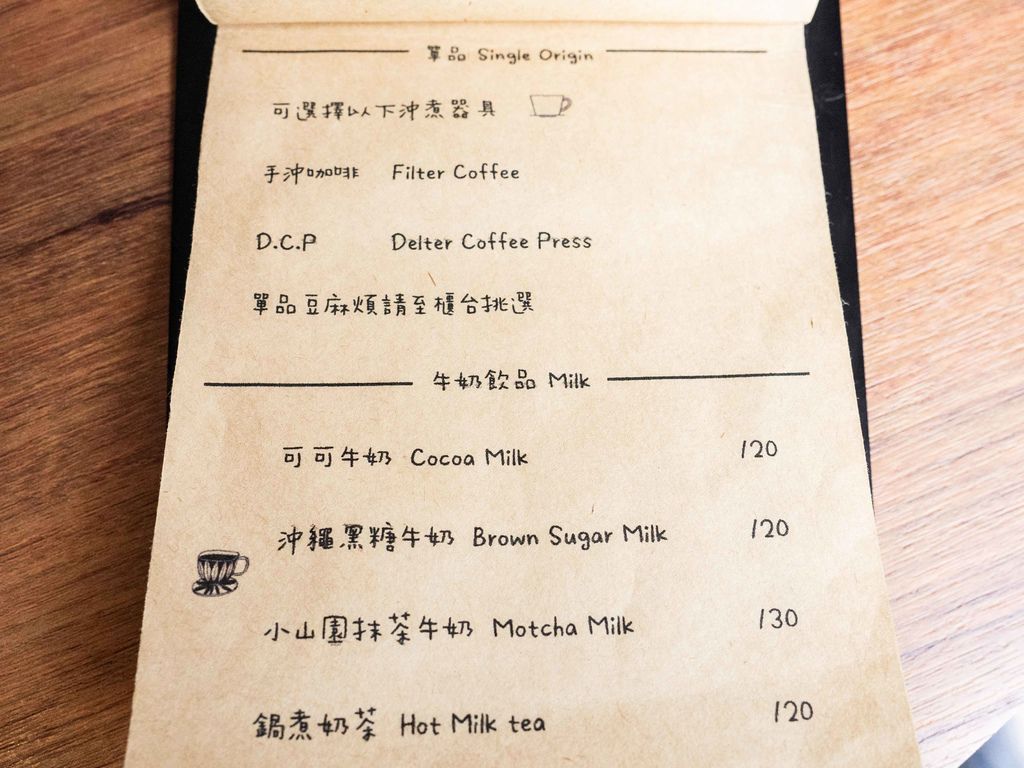 單品 Single Origin
可選擇以下沖煮器具
手沖咖啡 Filter Coffee
D.C.P Delter Coffee Press
單品豆麻煩請至櫃台挑選
牛奶飲品 Milk
可可牛奶 Cocoa Milk 120
沖繩黑糖牛奶 Brown Sugar Milk 120
小山園抹茶牛奶 Motcha Milk 130
鍋煮奶茶 Hot Milk tea 120